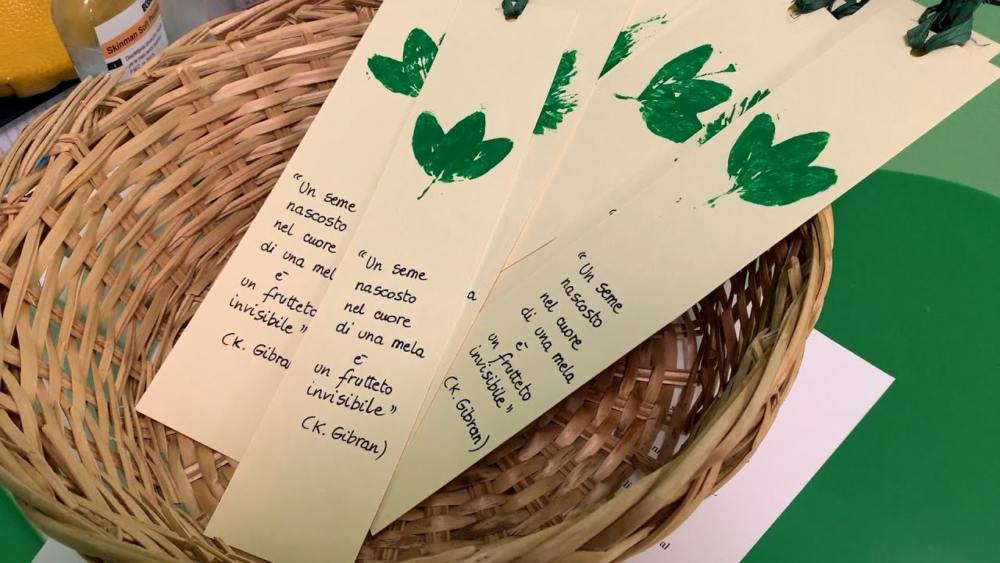 Skinman Soft
"Un seme
nascosto
nel cuore
di una mel
è
un frutteto
invisibile"
(K. Gibra
"Un seme
nascosto
nel cuore
di una mela
è
un frutteto
invisibile"
(K. Gibran)
a
"Un seme
nascosto
nel cuore
di una mela
è
un frutteto
invisibile"
(K. Gibran)
al